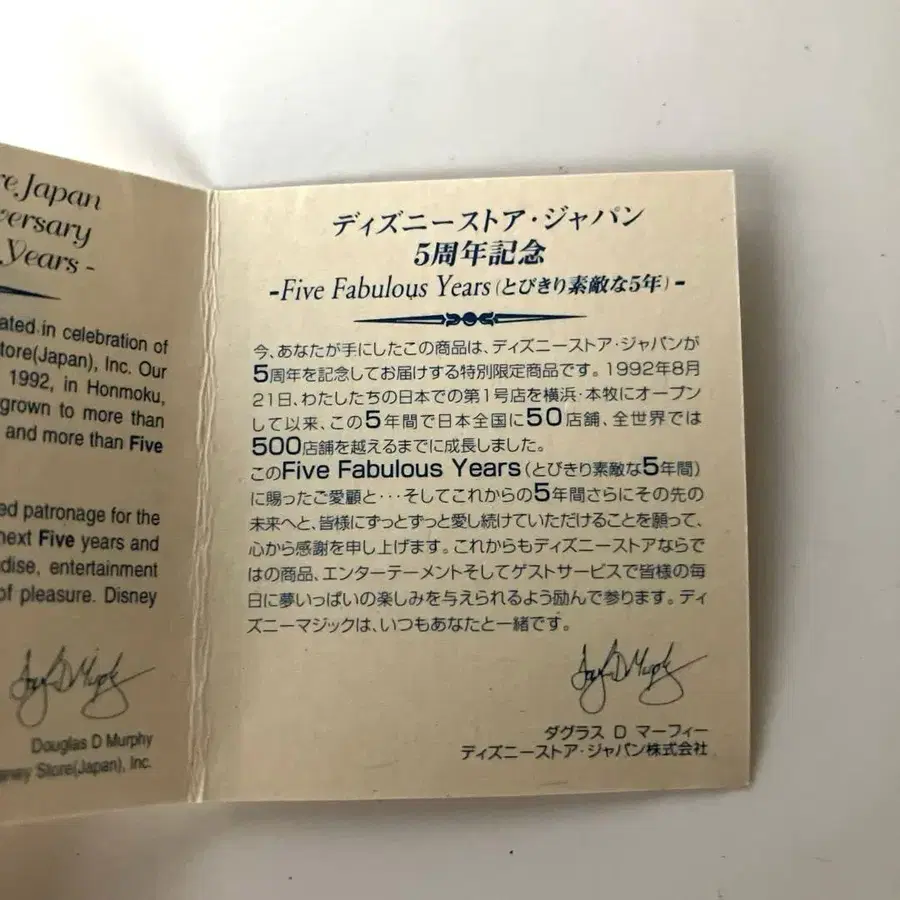 re Japan
versary
Years -
ated in celebration of
tore(Japan), Inc. Our
1992, in Honmoku,
grown to more than
and more than Five
ed patronage for the
next Five years and
dise, entertainment
of pleasure. Disney
Douglas D Murphy
Disney Store(Japan), Inc.
ディズニーストア・ジャパン
5周年記念
-Five Fabulous Years(とびきり素敵な5年)-
今、あなたが手にしたこの商品は、ディズニーストア・ジャパンが
5周年を記念してお届けする特別限定商品です。1992年8月
21日、わたしたちの日本での第1号店を横浜・本牧にオープン
して以来、この5年間で日本全国に50店舗、全世界では
500店舗を越えるまでに成長しました。
このFive Fabulous Years(とびきり素敵な5年間)
に賜ったご愛顧と・・・そしてこれからの5年間さらにその先の
未来へと、皆様にずっとずっと愛し続けていただけることを願って、
心から感謝を申し上げます。これからもディズニーストアならで
はの商品、エンターテーメントそしてゲストサービスで皆様の毎
日に夢いっぱいの楽しみを与えられるよう励んで参ります。ディ
ズニーマジックは、いつもあなたと一緒です。
ダグラス D マーフィー
ディズニーストア・ジャパン株式会社